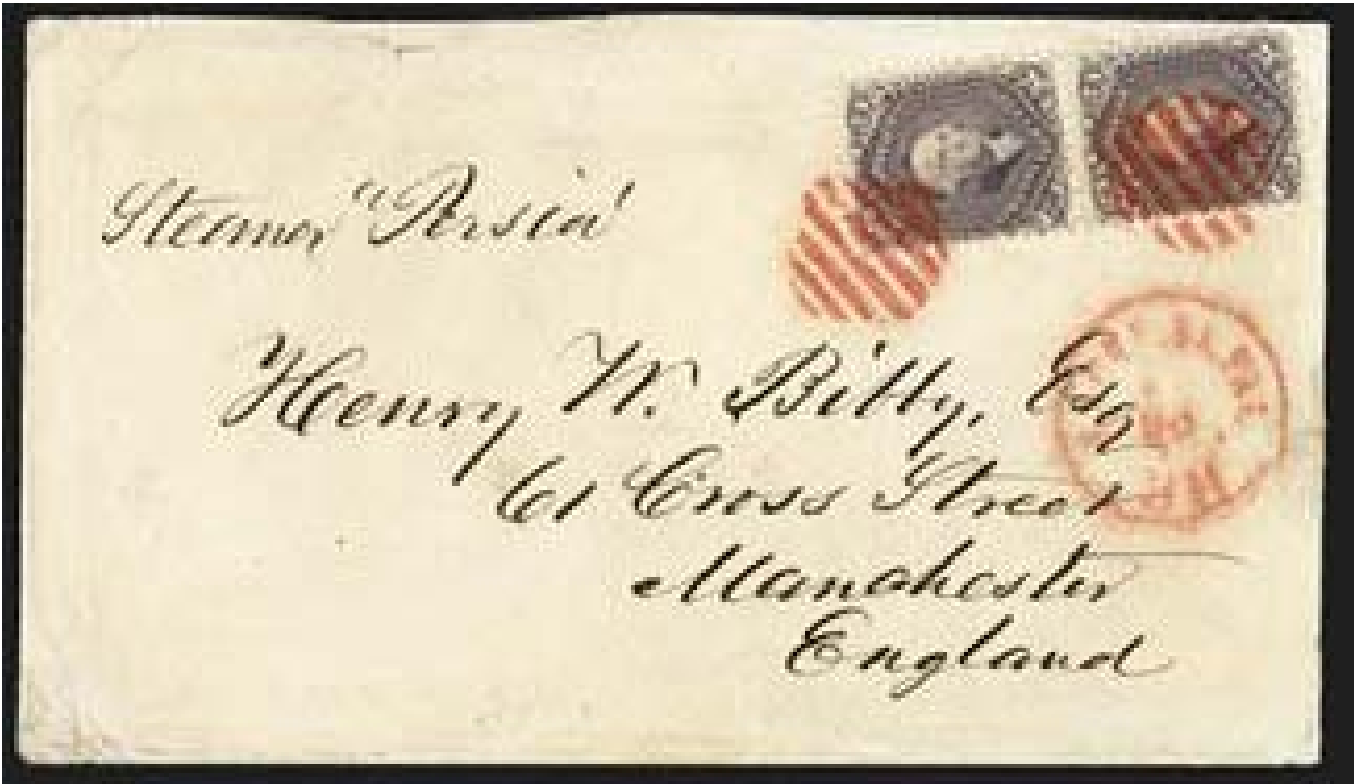 Steamer "Persia"
Henry W. Billy, Esq
61 Cross Street
Manchester
England